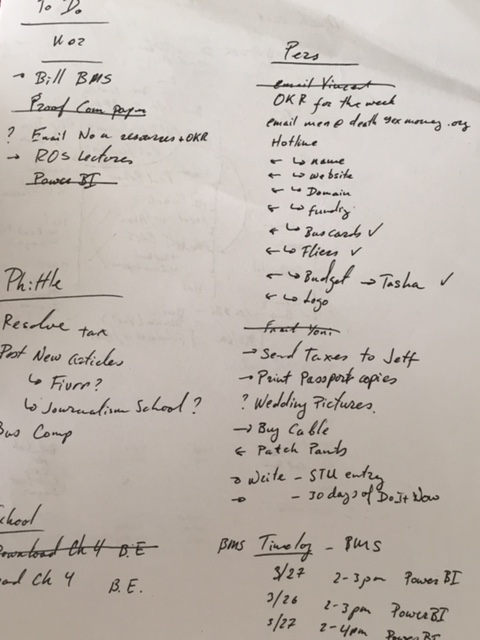 To Do
→ Bill BMS
Proof Campaign
? Email Noa resources + OKR
→ ROS Lectures
Power BI
Phittle
Resolve tax
Post New Articles
↳ Fiverr?
↳ Journalism School?
Bus Comp
School
Download Ch 4 B.E
Read Ch 4 B.E.
Pers
email Vincent
OKR for the week
email men@deathsexmoney.org
Hotline
← ↳ name
← ↳ website
← ↳ Domain
← ↳ funding
← ↳ Bus cards ✓
← ↳ Fliers ✓
← ↳ Budget → Tasha ✓
← ↳ Logo
→ Send Taxes to Jeff
→ Print Passport copies
? Wedding Pictures.
→ Buy Cable
← Patch Pants
→ Write - STU entry
→ - 30 days of Do It Now
BMS Timelog - BMS
3/27 2-3pm Power BI
3/26 2-3pm Power BI
3/27 2-4pm Power BI